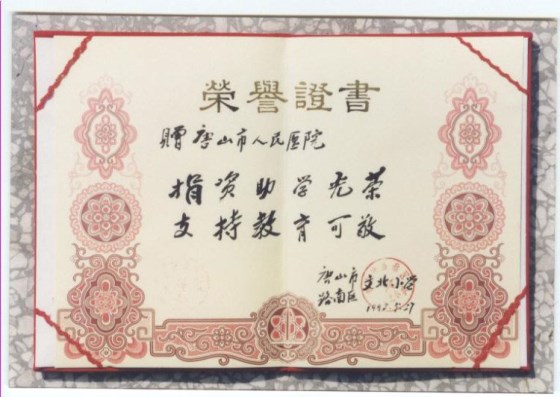 榮譽證書
贈唐山市人民医院
捐资助学光荣
支持教育可敬
唐山市
路南区
文北小学
1992.5.27